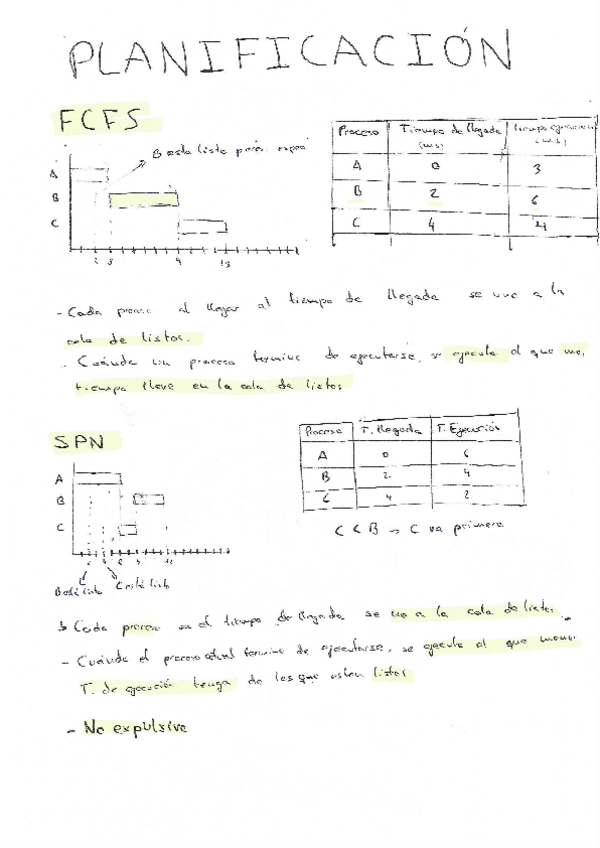 PLANIFICACIÓN
FCFS
B esta listo para
Proceso Tiempo de llegada (ms) Tiempo ejecución (ms)
A 0 3
B 2 6
C 4 4
A
B
C
2 3 9 13
- Cada proceso al llegar al tiempo de llegada se une a la
cola de listos.
- Cuándo un proceso termine de ejecutarse, se ejecuta el que
tiempo lleve en la cola de listos
SPN
Proceso T. llegada T. Ejecución
A 0 6
B 2 4
C 4 2
A
B
C
C < B → C va primero
B está listo C está listo
Cada proceso en el tiempo de llegada se une a la cola de listos
- Cuándo el proceso actual termine de ejecutarse, se ejecuta el que menos
T. de ejecución tenga de los que esten listos
- No expulsive